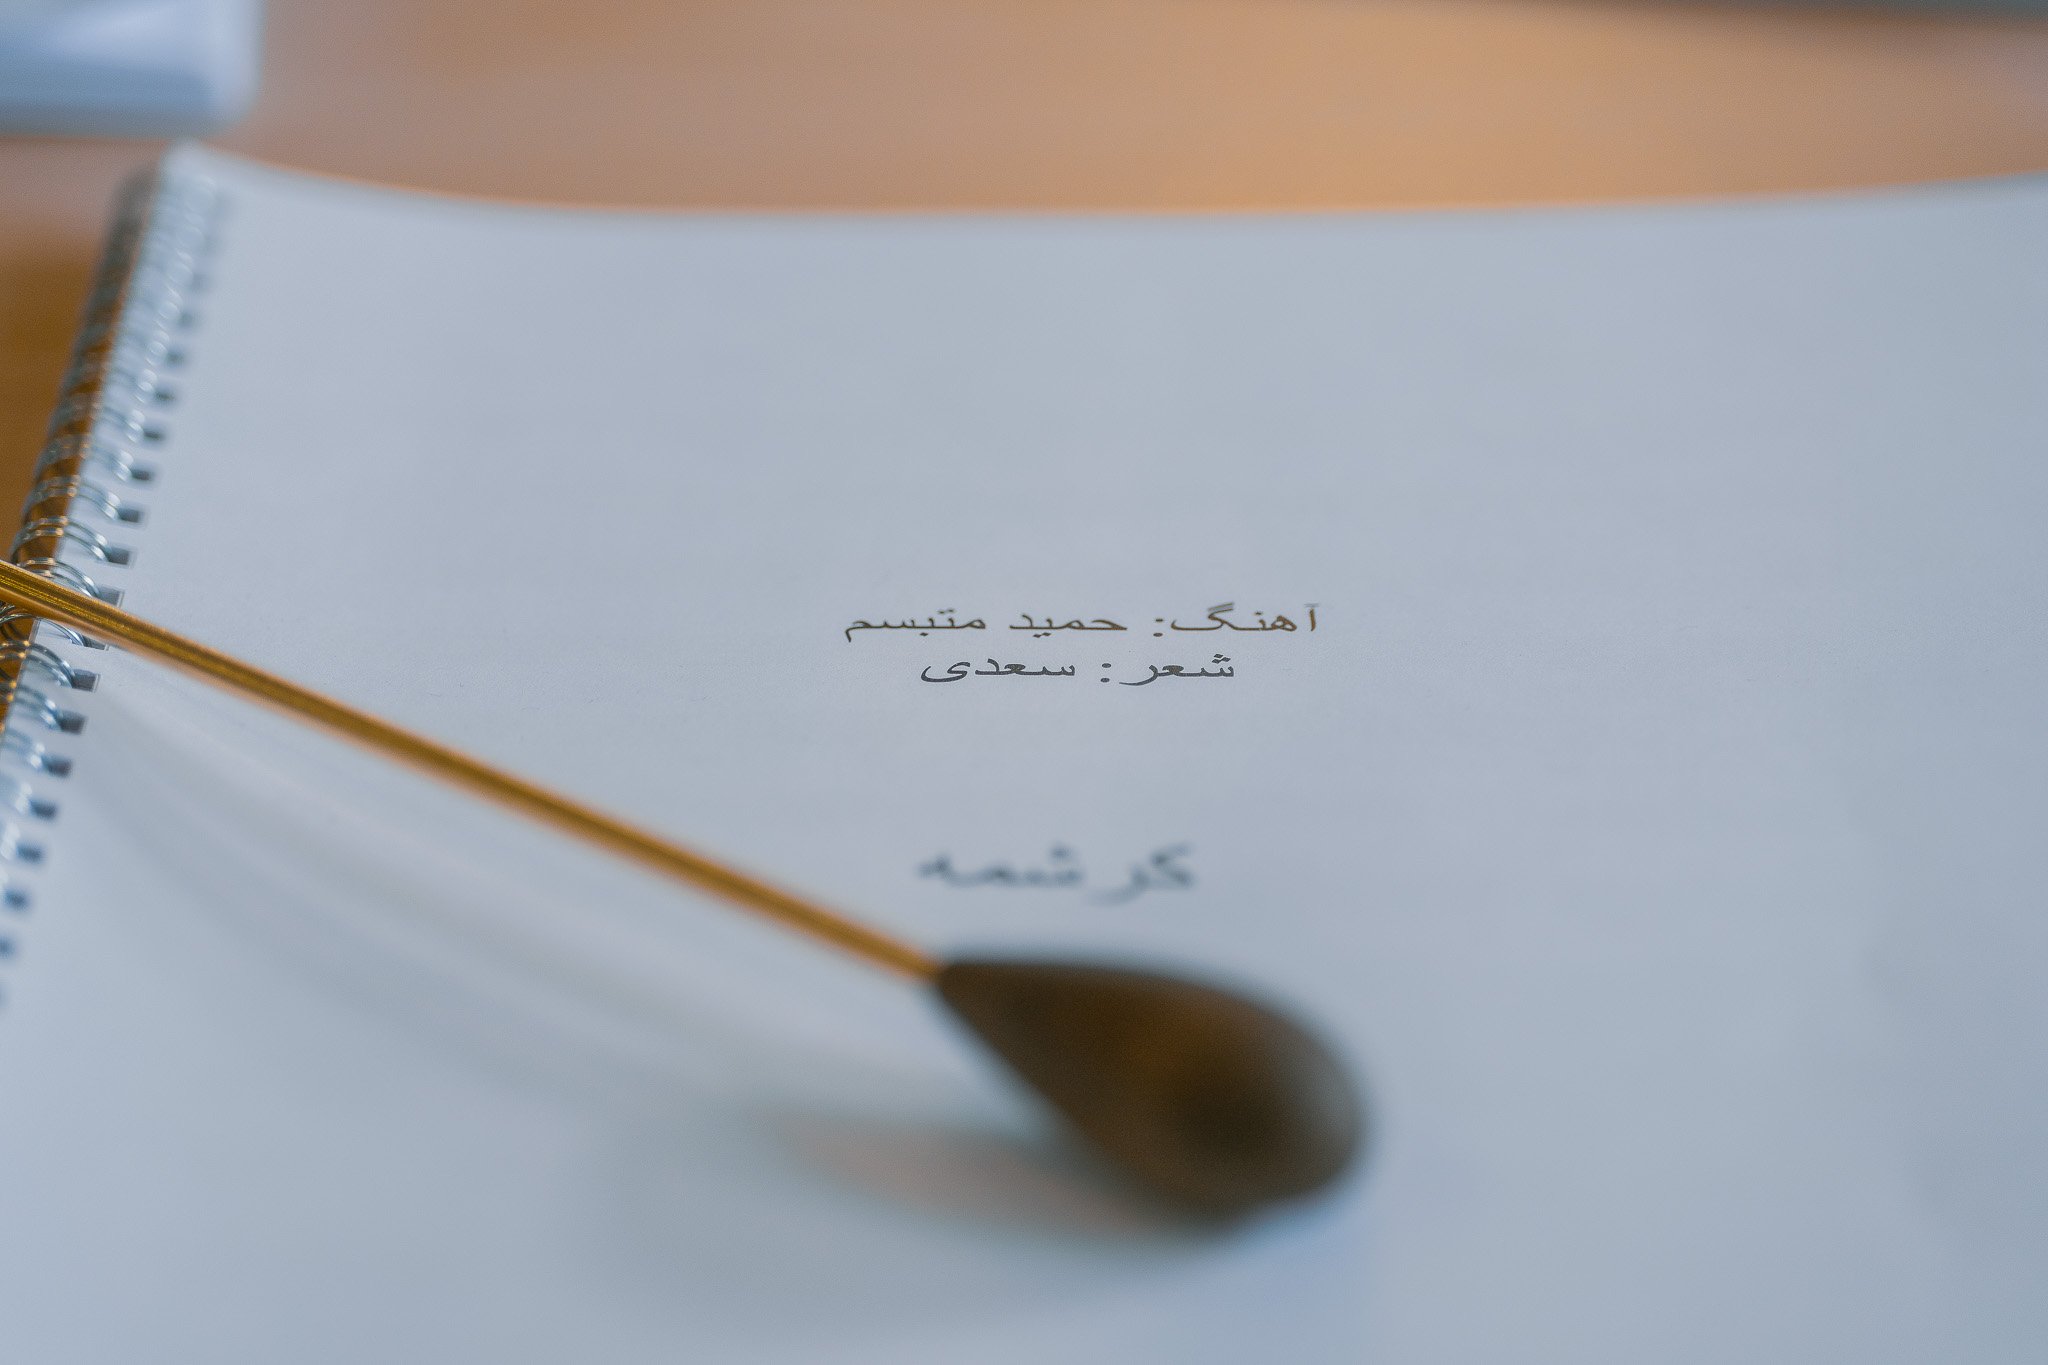 آهنگ: حمید متبسم
شعر: سعدی
کرشمه